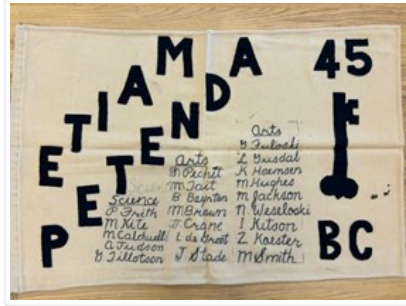 ETIAM
PETENDA
45
BC
Science
Science
P Frith
M Kite
M Caldwell
A Judson
G Tillotson
Arts
M Pechet
M Tait
B Boynton
M Brown
J Crane
L de Groot
J. Stade
Arts
G Fuloski
L Gusdal
K Hoemsen
M Hughes
M Jackson
N. Weseloski
I Kitson
Z Koester
M Smith